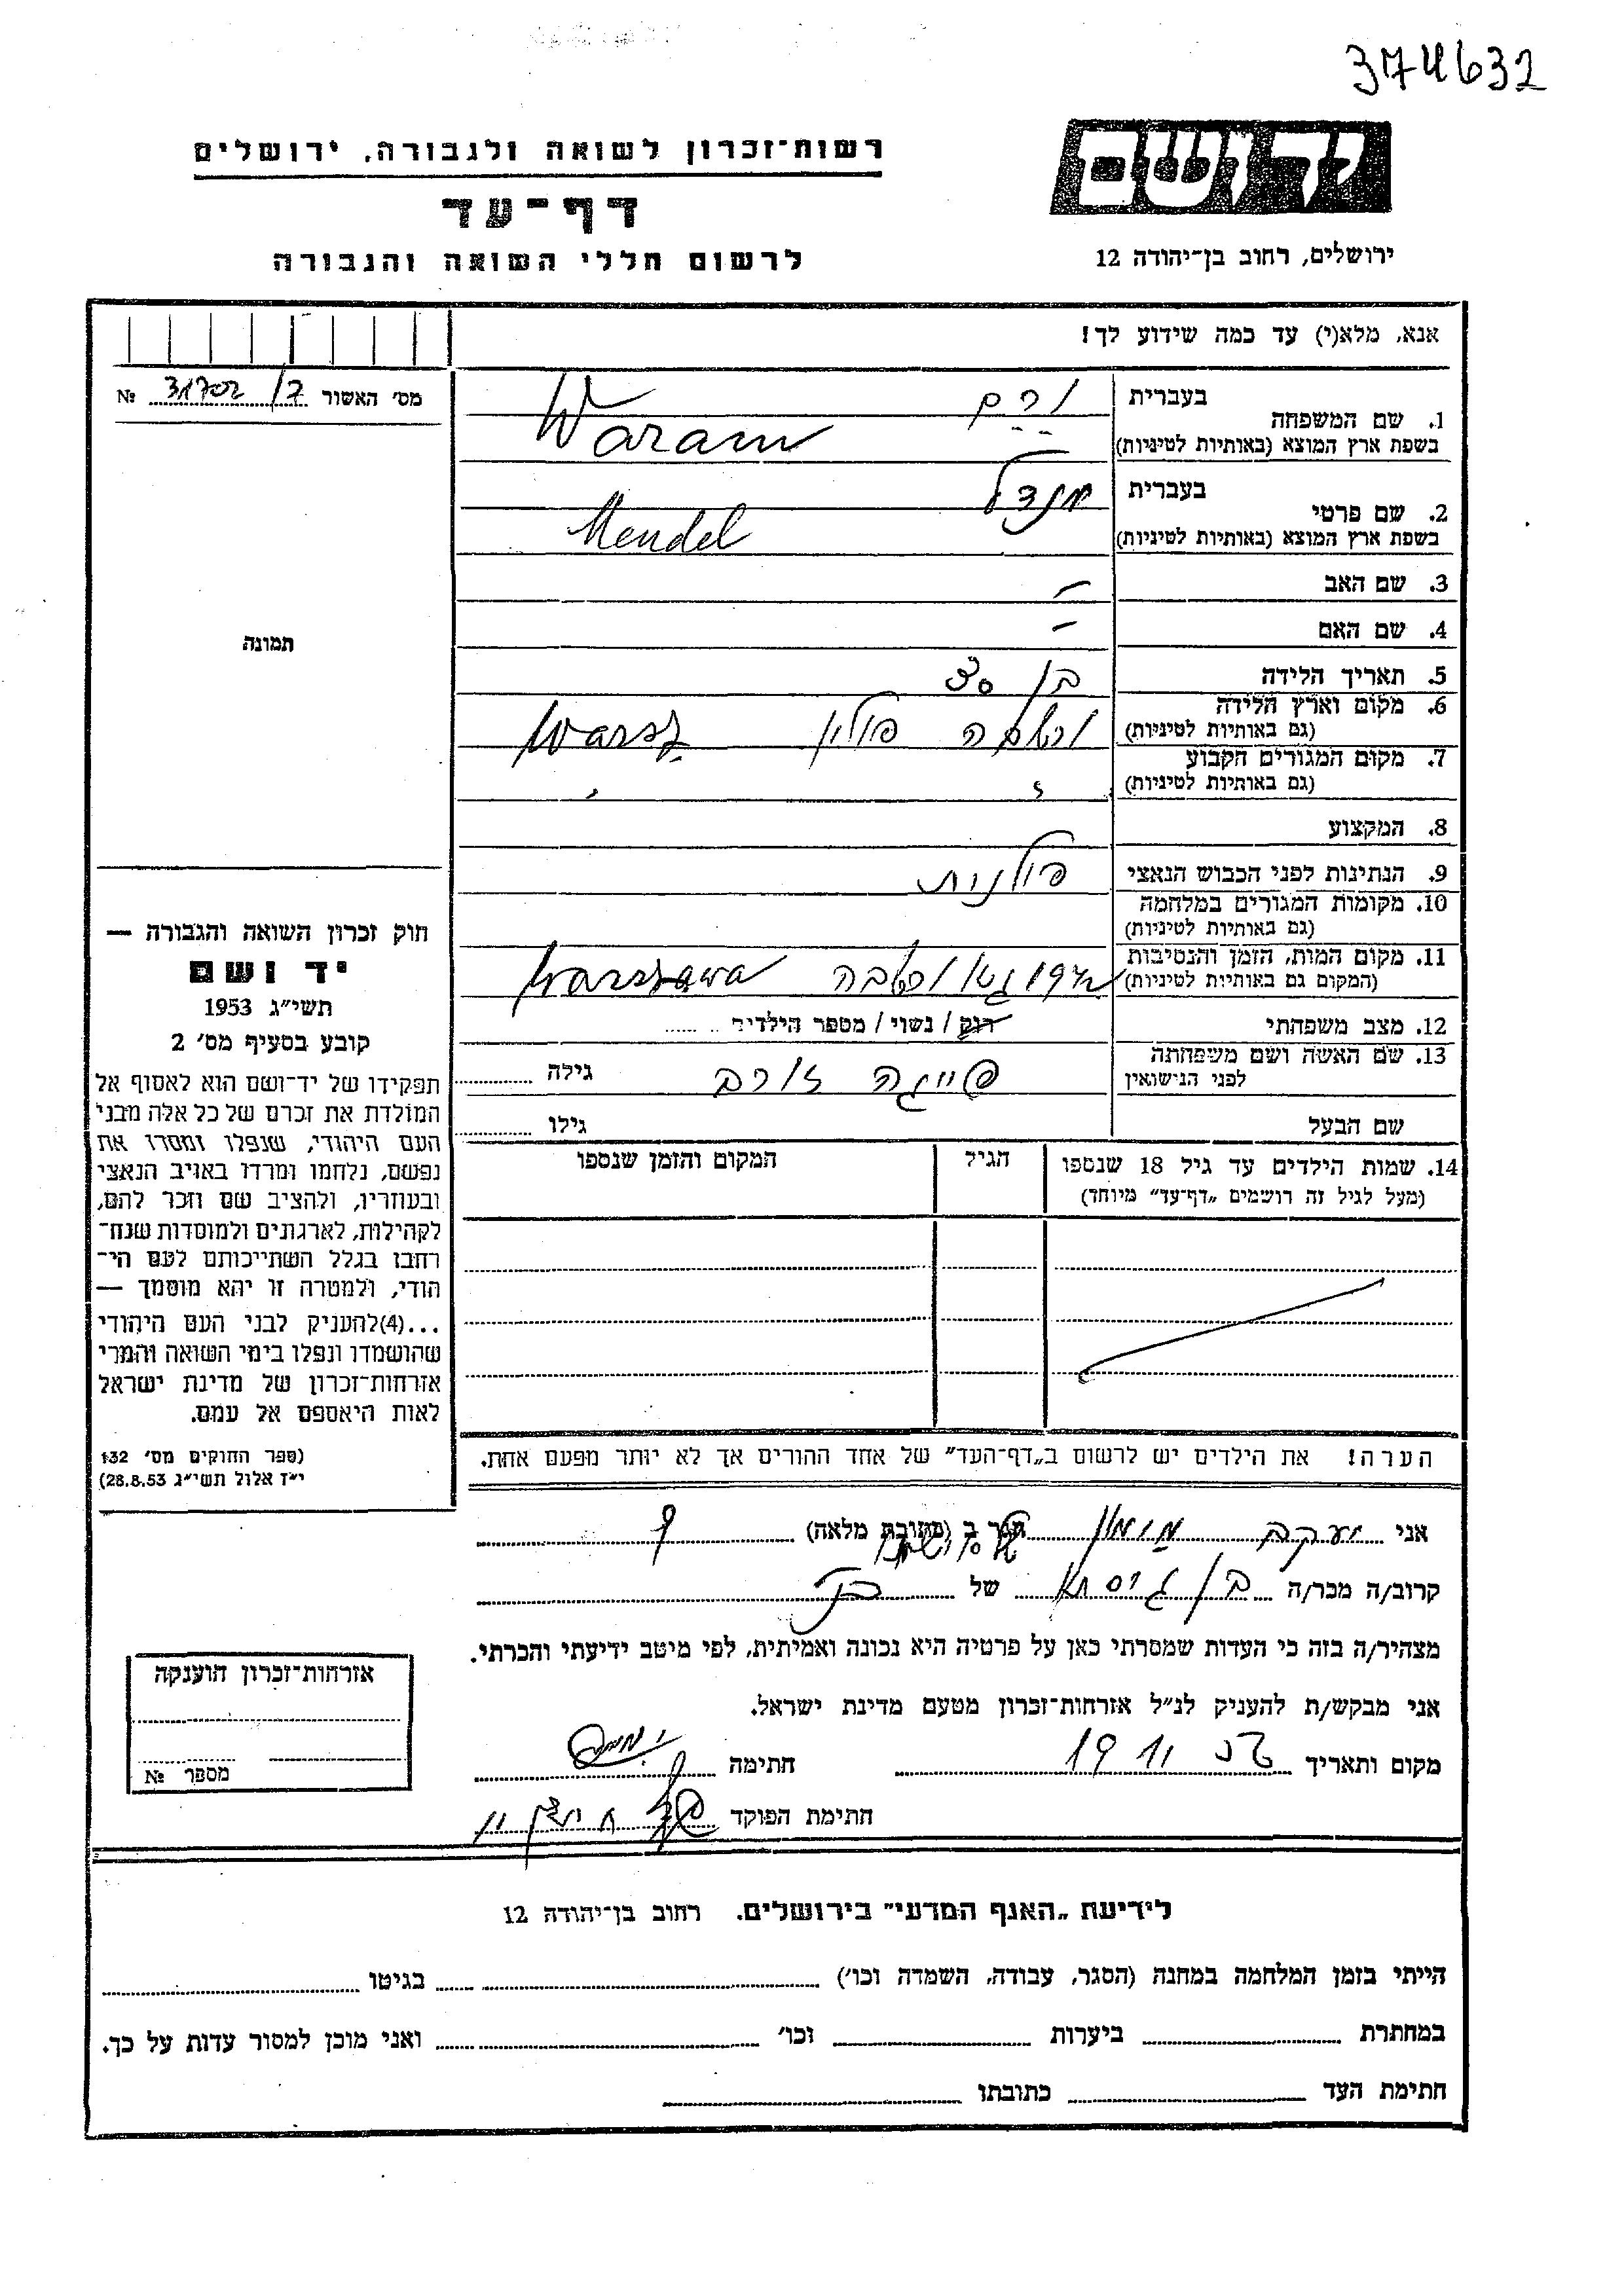 374632
רשות־זכרון לשואה ולגבורה, ירושלים
דף־עד
לרשום חללי השואה והגבורה
יד ושם
ירושלים, רחוב בן־יהודה 12
אנא, מלא(י) עד כמה שידוע לך!
מס׳ האשור 31702/7 №
תמונה
1. שם המשפחה בעברית ורם
בשפת ארץ המוצא (באותיות לטיניות) Waram
2. שם פרטי בעברית מנדל
בשפת ארץ המוצא (באותיות לטיניות) Mendel
3. שם האב –
4. שם האם –
5. תאריך הלידה בן 30
6. מקום וארץ הלידה
(גם באותיות לטיניות) ורשבה פולין Warsz
7. מקום המגורים הקבוע
(גם באותיות לטיניות)
8. המקצוע
9. הנתינות לפני הכבוש הנאצי פולנית
10. מקומות המגורים במלחמה
(גם באותיות לטיניות)
11. מקום המות, הזמן והנסיבות
(המקום גם באותיות לטיניות) גטו ורשבה Warszawa
12. מצב משפחתי רווק / נשוי / מספר הילדים
13. שם האשה ושם משפחתה
לפני הנישואין פייגה גילה
שם הבעל גילו
14. שמות הילדים עד גיל 18 שנספו הגיל המקום והזמן שנספו
(מעל לגיל זה רושמים „דף־עד” מיוחד)
הערה! את הילדים יש לרשום ב„דף־העד” של אחד ההורים אך לא יותר מפעם אחת.
חוק זכרון השואה והגבורה —
יד ושם
תשי״ג 1953
קובע בסעיף מס׳ 2
תפקידו של יד־ושם הוא לאסוף אל
המולדת את זכרם של כל אלה מבני
העם היהודי, שנפלו ומסרו את
נפשם, נלחמו ומרדו באויב הנאצי
ובעוזריו, ולהציב שם וזכר להם,
לקהילות, לארגונים ולמוסדות שנח־
רחבו בגלל השתייכותם לעם הי־
הודי, ולמטרה זו יהא מוסמך —
...(4)להעניק לבני העם היהודי
שהושמדו ונפלו בימי השואה והמרי
אזרחות־זכרון של מדינת ישראל
לאות היאספם אל עמם.
(ספר החוקים מס׳ 132
י״ז אלול תשי״ג 28.8.53)
אני יעקב גר ב (כתובת מלאה)
קרוב/ה מכר/ה בן גיסתו של
מצהיר/ה בזה כי העדות שמסרתי כאן על פרטיה היא נכונה ואמיתית, לפי מיטב ידיעתי והכרתי.
אני מבקש/ת להעניק לנ״ל אזרחות־זכרון מטעם מדינת ישראל.
מקום ותאריך חתימה
חתימת הפוקד
אזרחות־זכרון הוענקה
מספר №
לידיעת „האגף המדעי” בירושלים. רחוב בן־יהודה 12
הייתי בזמן המלחמה במחנה (הסגר, עבודה, השמדה וכו׳) בגיטו
במחתרת ביערות וכו׳ ואני מוכן למסור עדות על כך.
חתימת העד כתובתו